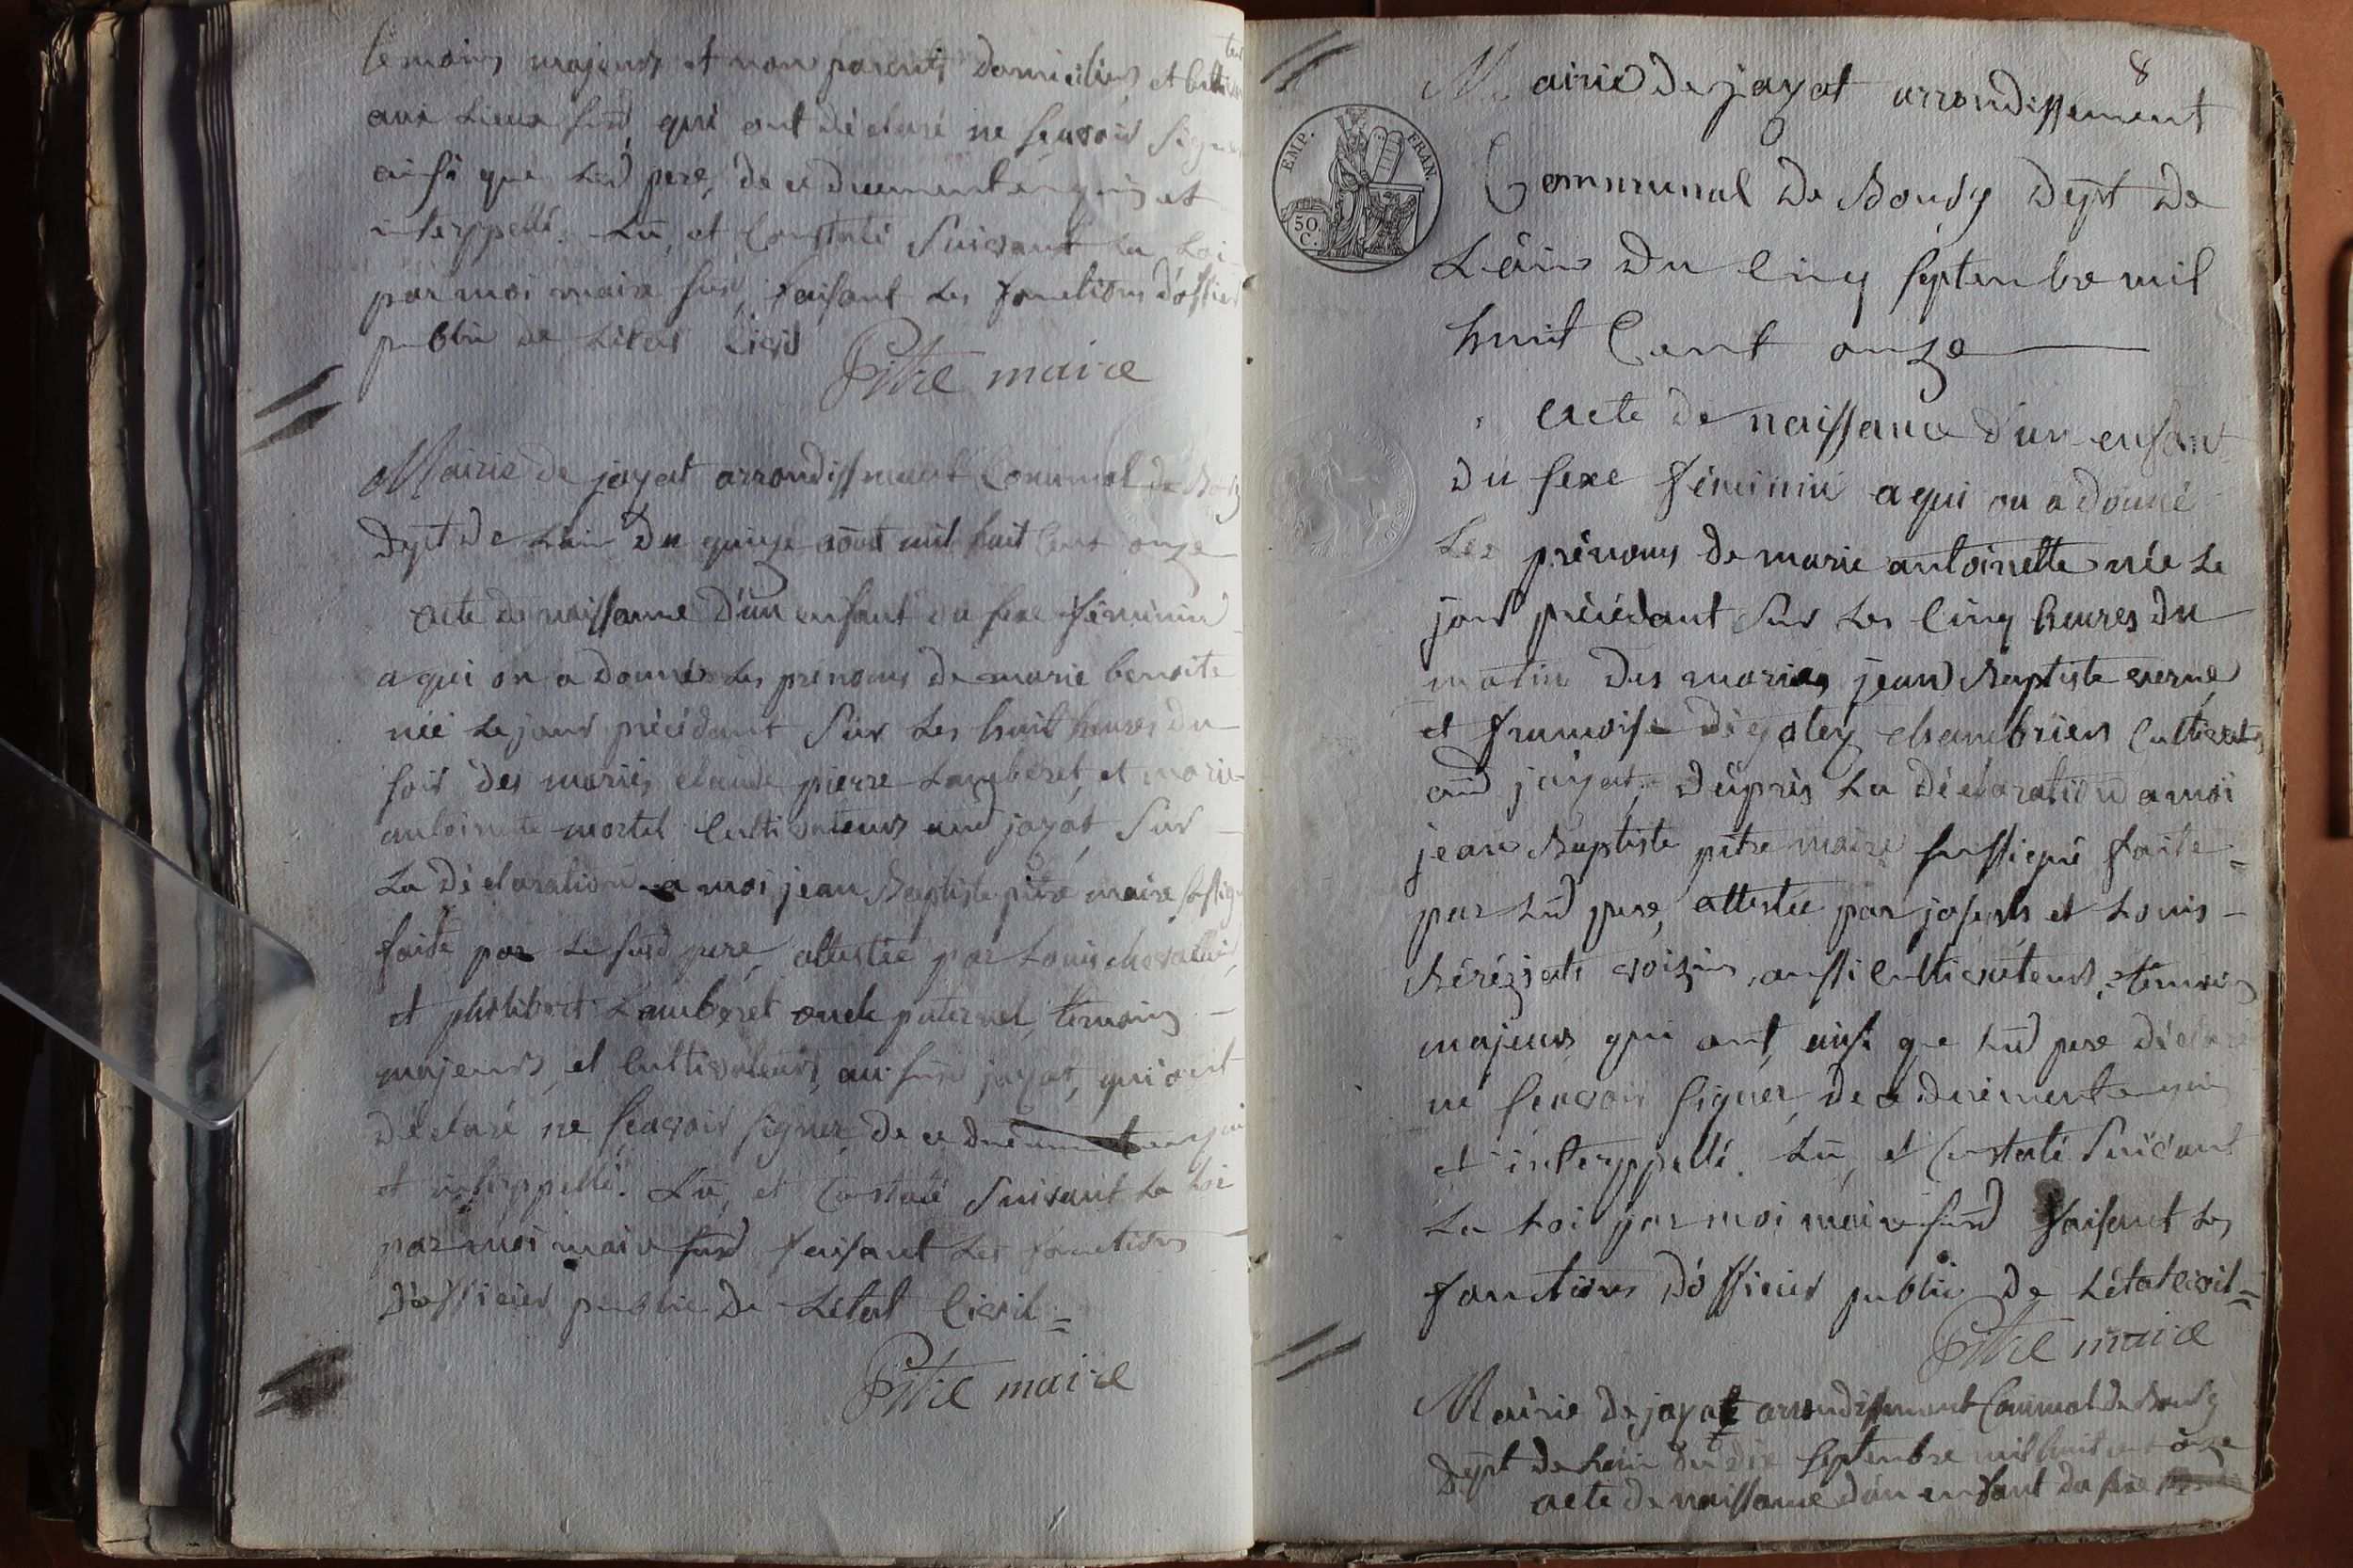 temoins majeurs et non parents domiciliés et
aux lieux susd qui ont déclaré ne scavoir signer
ainsi que led pere, de ce duement enquis et
interppellé. Lu, et Constaté suivant la Loi
par moi maire susd, faisant les fonctions d'officier
public de L'état Civil
Pitre maire
Mairie de jayat arrondissement Communal de Bourg
Dept de L'ain du quinze aout mil huit Cent onze
acte de naissance d'un enfant du sexe féminin
a qui on a donné les prenoms de marie benoite
née le jour précédant sur les huit heures du
soir des mariés claude pierre Lamberet, et marie
antoinette mortel Cultivateurs aud jayat, sur
la déclaration a moi jean Baptiste pitre maire sussigné
faite par le susd pere, attestée par Louis chevallier,
et philibert Lamberet oncle paternel, temoins
majeurs, et Cultivateurs, au susd jayat, qui ont
déclaré ne scavoir signer de ce duement enquis
et interppellé. Lu, et Constaté suivant la Loi
par moi maire susd faisant les fonctions
d'officier public de L'état Civil =
Pitre maire
8
Mairie de jayat arrondissement
Communal de Bourg Dept de
L'ain du Cinq septembre mil
huit Cent onze
EMP. FRAN.
50 C.
acte de naissance d'un enfant
du sexe féminin a qui on a donné
les prénoms de marie antoinette née le
jour précédant sur les Cinq heures du
matin des mariés jean Baptiste verne
et francoise chambrien Cultivateurs
aud jayat, d'après la déclaration a moi
jean Baptiste pitre maire sussigné faite =
par led pere, attestée par joseph et Louis
Béréziat voisins, aussi Cultivateurs, temoins
majeurs, qui ont, ainsi que led pere déclaré
ne scavoir signer, de ce duement enquis
et interppellé. Lu, et Constaté suivant
la Loi par moi maire susd faisant les
fonctions d'officier public de L'état Civil =
Pitre maire
Mairie de jayat arrondissement Communal de Bourg
Dept de L'ain du dix septembre mil huit cent onze
acte de naissance d'un enfant du sexe